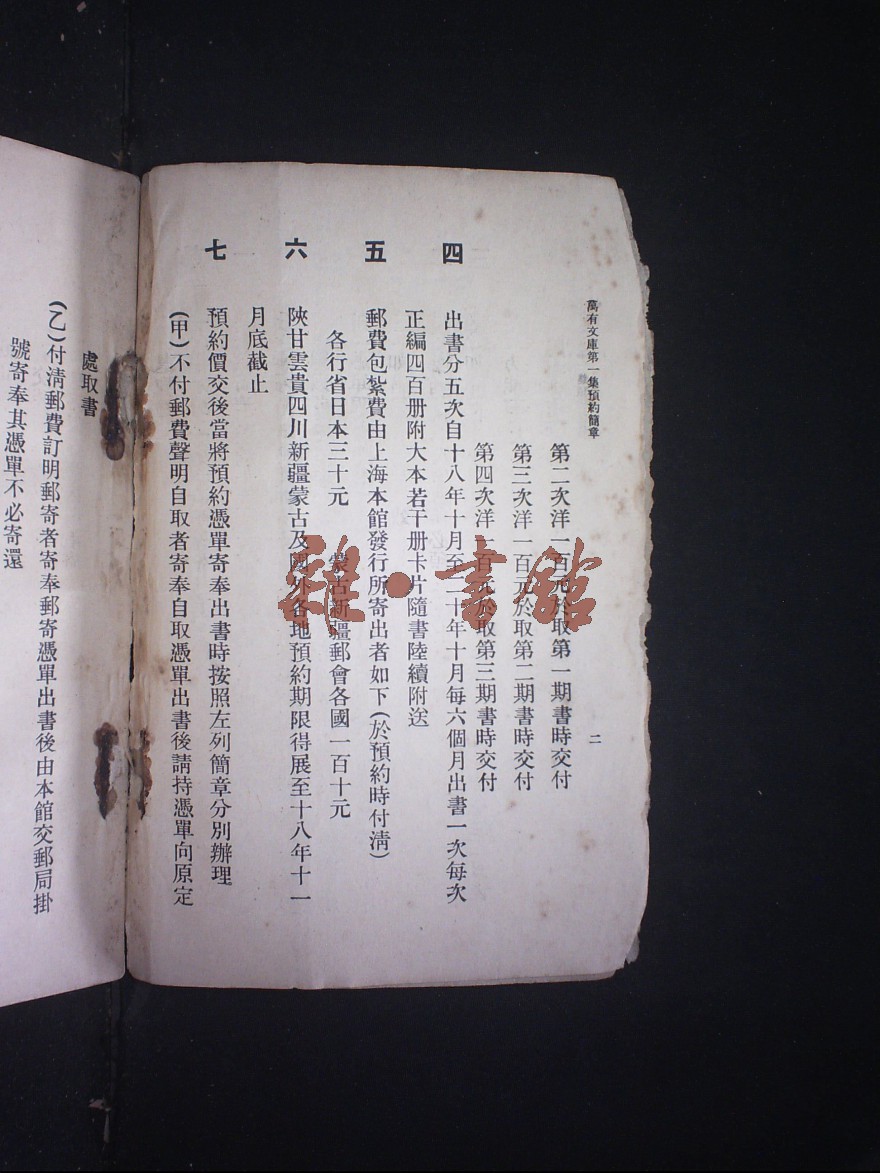 萬有文庫第一集預約簡章
二
第二次洋一百元於取第一期書時交付
第三次洋一百元於取第二期書時交付
第四次洋一百元於取第三期書時交付
四 出書分五次自十八年十月至二十年十月每六個月出書一次每次
正編四百册附大本若干册卡片隨書陸續附送
五 郵費包紮費由上海本館發行所寄出者如下(於預約時付清)
各行省日本三十元 蒙古新疆郵會各國一百十元
六 陝甘雲貴四川新疆蒙古及國外各地預約期限得展至十八年十一
月底截止
七 預約價交後當將預約憑單寄奉出書時按照左列簡章分別辦理
(甲)不付郵費聲明自取者寄奉自取憑單出書後請持憑單向原定
處取書
(乙)付清郵費訂明郵寄者寄奉郵寄憑單出書後由本館交郵局掛
號寄奉其憑單不必寄還
雜·書館